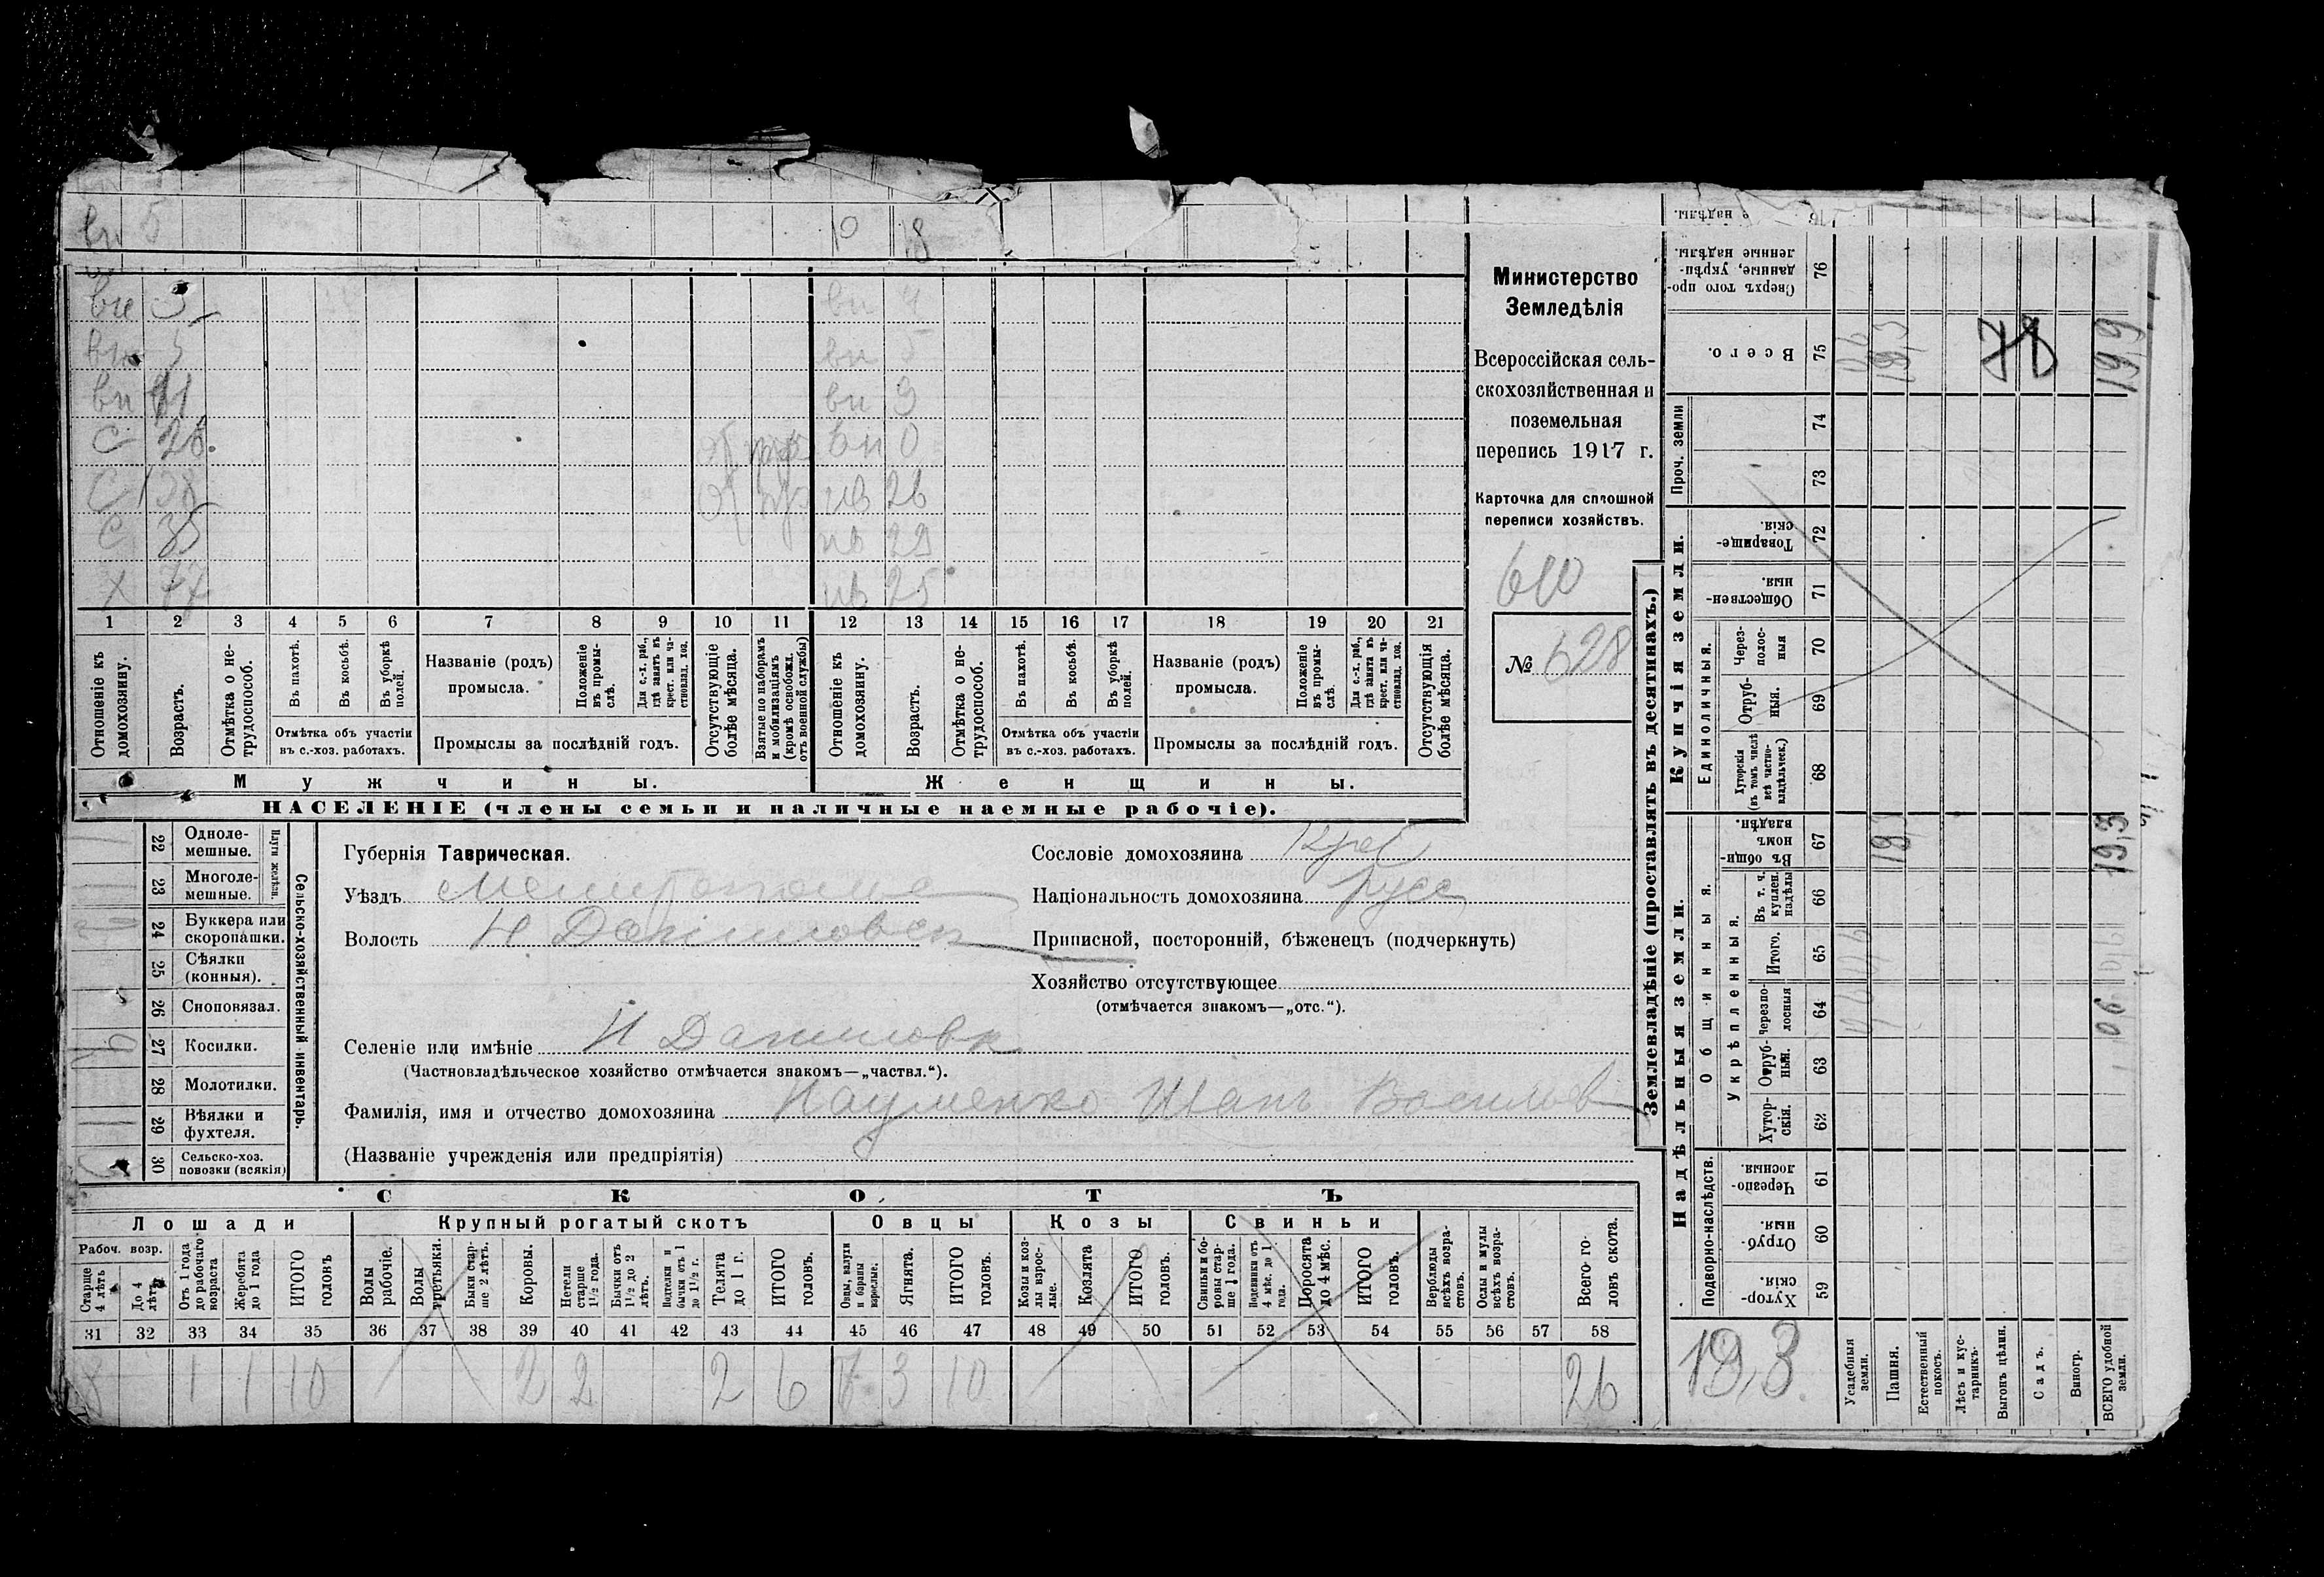 вн 5 10 8
вн 5 вн 4
вн 5 вн 5
вн 11 вн 9
С 26. вн 0
С 38 нв 26
С 35 нв 29
Х 77 нв 25
1 2 3 4 5 6 7 8 9 10 11 12 13 14 15 16 17 18 19 20 21
Отношеніе къ домохозяину.
Возрастъ.
Отмѣтка о не-трудоспособ.
Въ пахотѣ.
Въ косьбѣ.
Въ уборкѣ полей.
Отмѣтка объ участіи въ с.-хоз. работахъ.
Названіе (родъ) промысла.
Положеніе въ промы-слѣ.
Для с.-х. раб., гдѣ занятъ въ крест. или ча-стновлад. хоз.
Промыслы за послѣдній годъ.
Отсутствующіе болѣе мѣсяца.
Взятые по наборамъ и мобилизаціямъ (кромѣ освобожд. отъ военной службы)
Отношеніе къ домохозяину.
Возрастъ.
Отмѣтка о не-трудоспособ.
Въ пахотѣ.
Въ косьбѣ.
Въ уборкѣ полей.
Отмѣтка объ участіи въ с.-хоз. работахъ.
Названіе (родъ) промысла.
Положеніе въ промы-слѣ.
Для с.-х. раб., гдѣ занята въ крест. или ча-стновлад. хоз.
Промыслы за послѣдній годъ.
Отсутствующія болѣе мѣсяца.
Мужчины.
Женщины.
НАСЕЛЕНІЕ (члены семьи и наличные наемные рабочіе).
Министерство
Земледѣлія
Всероссійская сель-
скохозяйственная и
поземельная
перепись 1917 г.
Карточка для сплошной
переписи хозяйствъ.
610
№ 628
22 Одноле-мешные.
23 Многоле-мешные.
Плуги желѣзн.
24 Буккера или скоропашки.
25 Сѣялки (конныя).
26 Сноповязал.
27 Косилки.
28 Молотилки.
29 Вѣялки и фухтеля.
30 Сельско-хоз. повозки (всякія)
Сельско-хозяйственный инвентарь.
Губернія Таврическая.
Уѣздъ Мелитополье
Волость Н Даниловск
Селеніе или имѣніе Н Даниловк
(Частновладѣльческое хозяйство отмѣчается знакомъ—„частвл.“).
Фамилія, имя и отчество домохозяина Науменко Иванъ Васильев
(Названіе учрежденія или предпріятія)
Сословіе домохозяина Крес
Національность домохозяина русс
Приписной, посторонній, бѣженецъ (подчеркнуть)
Хозяйство отсутствующее
(отмѣчается знакомъ—„отс.“).
СКОТЪ
Лошади
Крупный рогатый скотъ
Овцы
Козы
Свиньи
Рабоч. возр.
Старше 4 лѣтъ
До 4 лѣтъ
Отъ 1 года до рабочаго возраста
Жеребята до 1 года
ИТОГО головъ
Волы рабочіе.
Волы третьяки.
Быки стар-ше 2 лѣтъ.
Коровы.
Нетели старше 1½ года.
Бычки отъ 1½ до 2 лѣтъ.
Подтелки и бычки отъ 1 до 1½ г.
Телята до 1 г.
ИТОГО головъ.
Овцы, валухи и бараны взрослые.
Ягнята.
ИТОГО головъ.
Козы и коз-лы взрос-лые.
Козлята
ИТОГО головъ.
Свиньи и бо-ровы стар-ше 1 года.
Подсвинки отъ 4 мѣс. до 1 года.
Поросята до 4 мѣс.
ИТОГО головъ.
Верблюды всѣхъ возра-стовъ.
Ослы и мулы всѣхъ возра-стовъ.
Всего го-ловъ скота.
31 32 33 34 35 36 37 38 39 40 41 42 43 44 45 46 47 48 49 50 51 52 53 54 55 56 57 58
8 1 1 10 2 2 2 6 7 3 10 26
Землевладѣніе (проставлять въ десятинахъ.)
Надѣльныя земли.
Купчія земли.
Проч. земли
Подворно-наслѣдств.
Общинныя.
Укрѣпленныя.
Единоличныя.
Хутор-скія. 59
Отруб-ныя. 60
Черезпо-лосныя. 61
Хутор-скія. 62
Отруб-ныя. 63
Черезпо-лосныя 64
Итого. 65
Въ т. ч. куплен. надѣлы 66
Въ общи-номъ владѣн. 67
Хуторскія (въ томъ числѣ всѣ частно-владѣльческ.) 68
Отруб-ныя. 69
Через-полос-ныя 70
Обществен-ныя. 71
Товарище-скія. 72
73
74
Всего. 75
Сверхъ того про-данные, укрѣп-ленные надѣлы. 76
19,3
Усадебныя земли.
Пашня.
Естественный покосъ.
Лѣсъ и кус-тарникъ.
Выгонъ цѣлин.
Садъ.
Виногр.
ВСЕГО удобной земли.
06
193
199
78